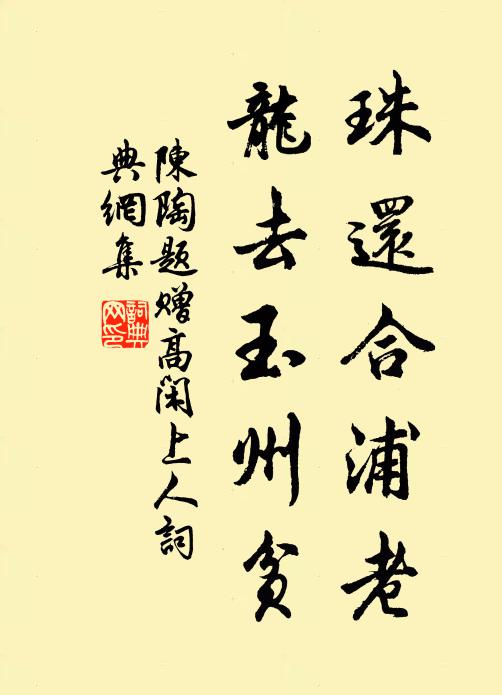 珠還合浦老
龍去玉州貧
陳陶題贈高閑上人詞
典網集
詞典
网印